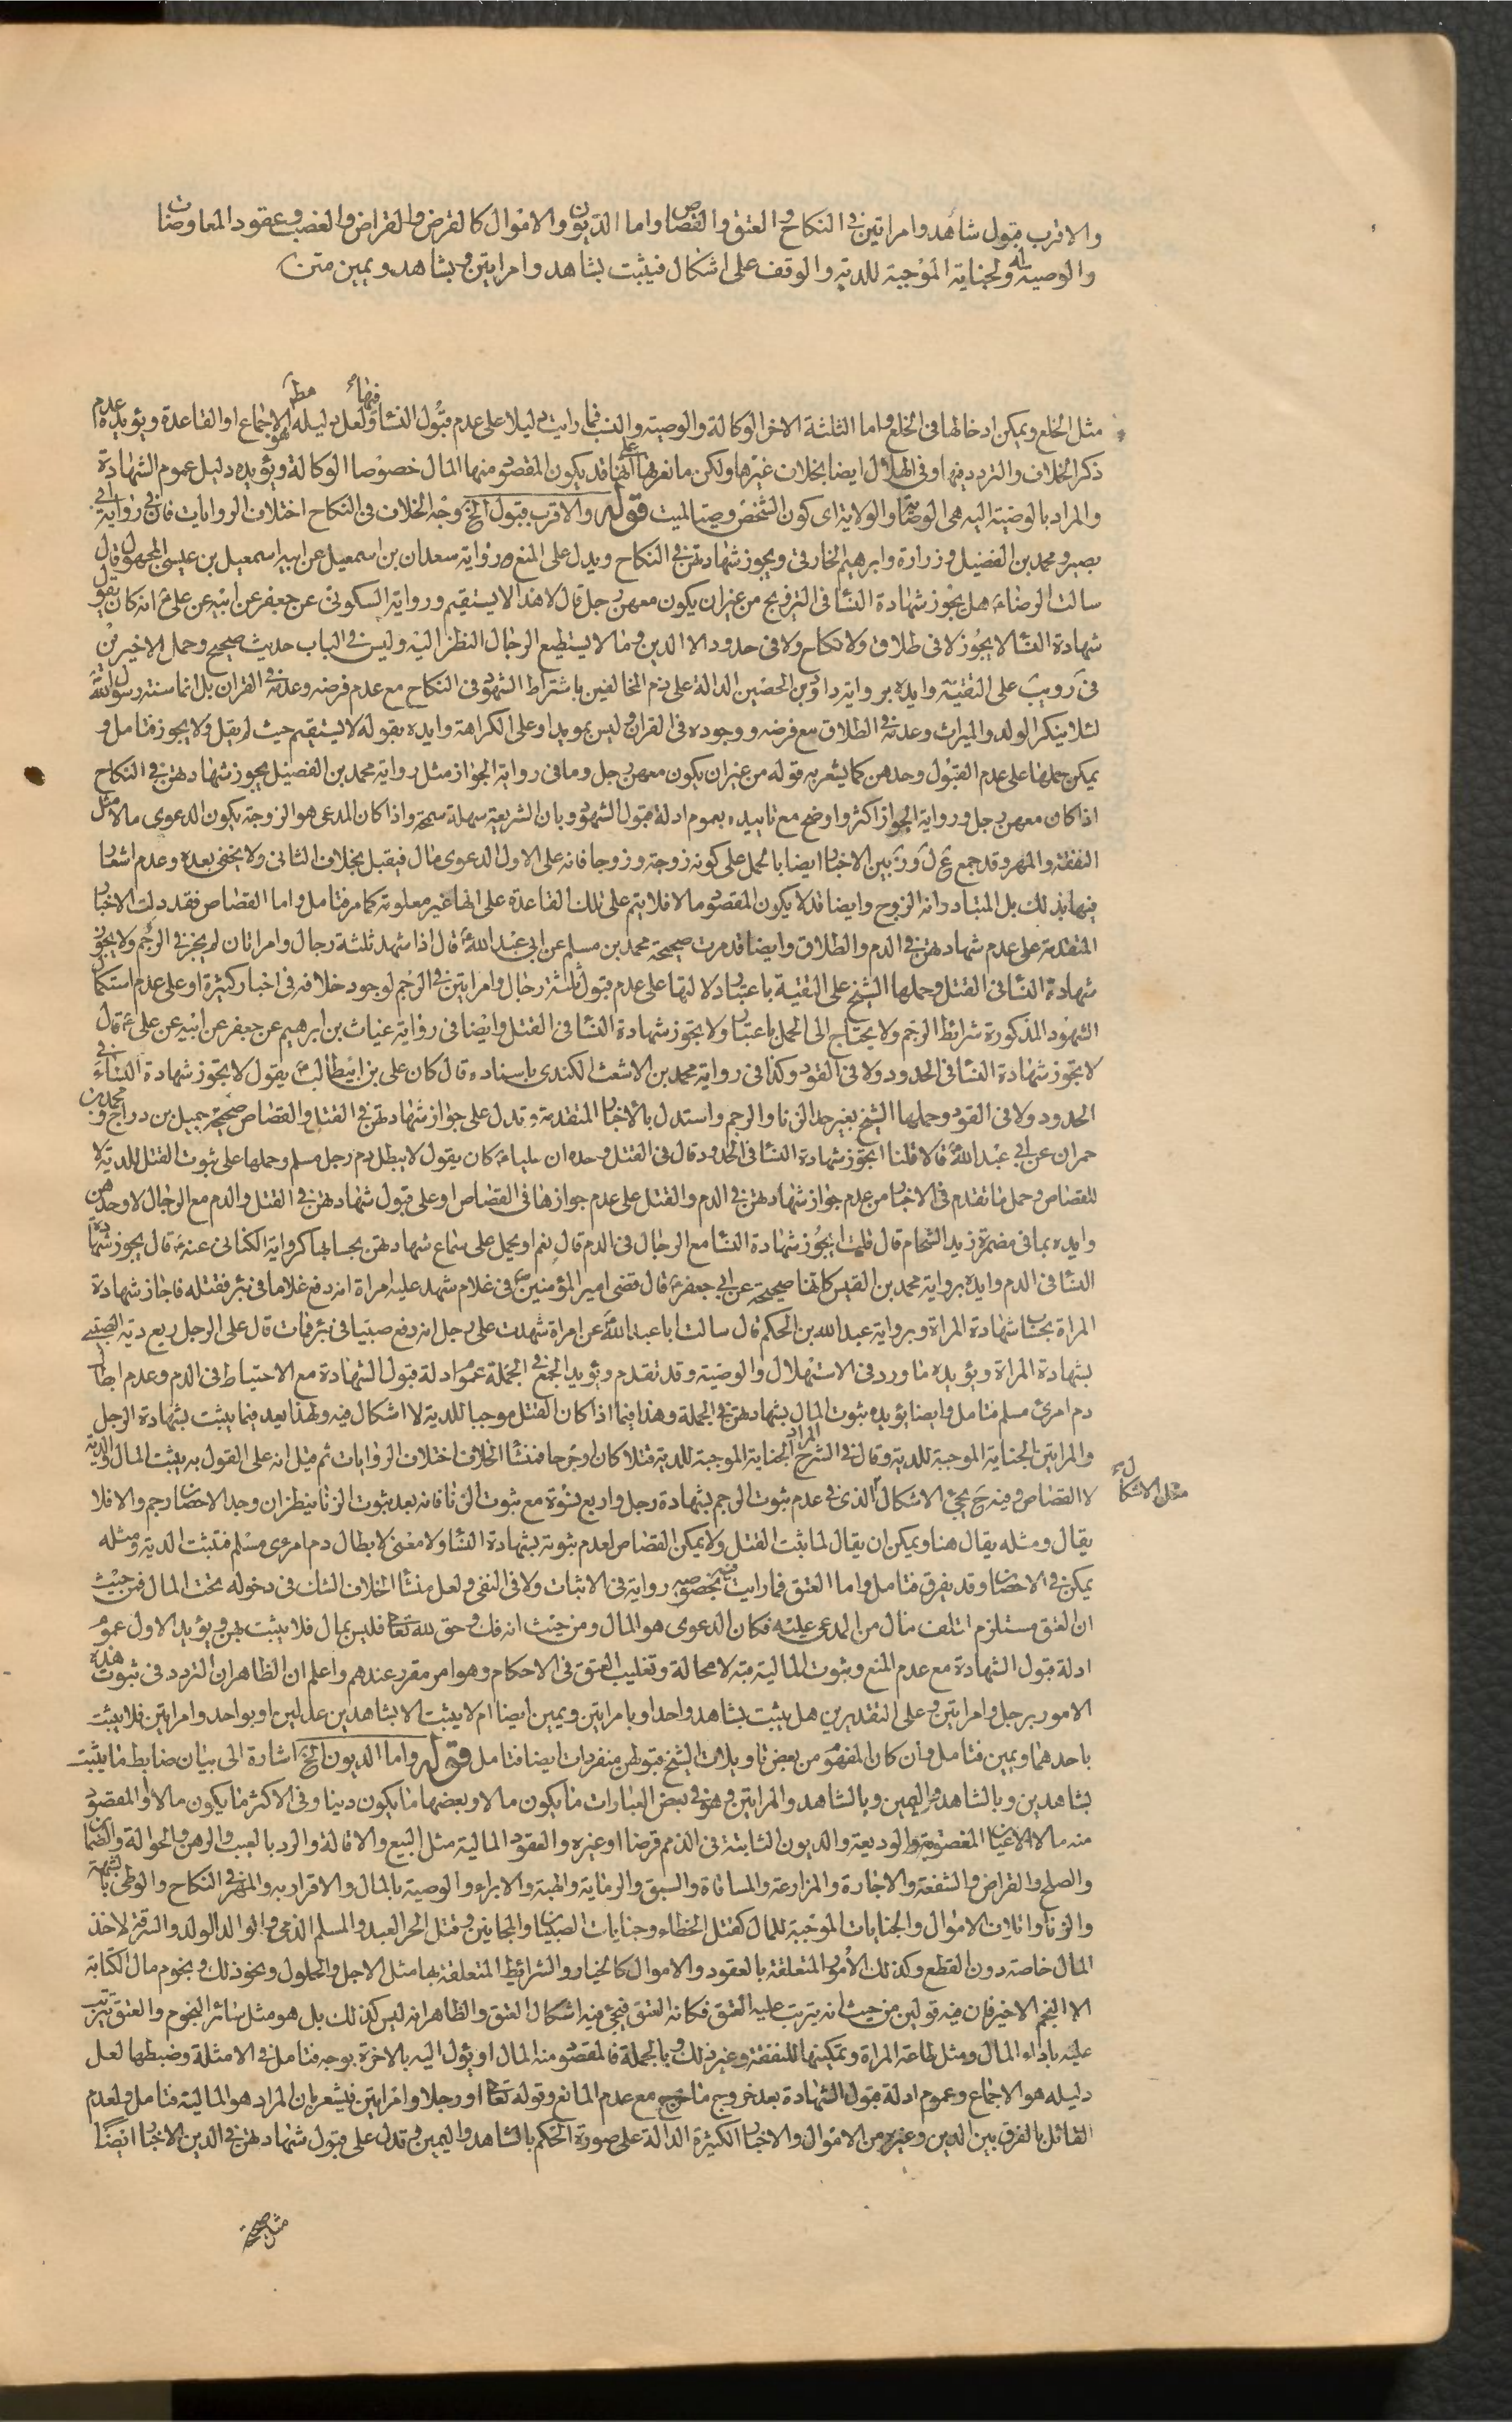 والاقرب قبول شاهد وامراتين فى النكاح والعتق والقصاص واما الديون والاموال كالقرض والقراض والغصب وعقود المعاوضات
والوصية له والجناية الموجبة للدية والوقف على اشكال فيثبت بشاهد وامراتين وبشاهد ويمين متن
مثل الخلع ويمكن ادخالها فى الخلع واما الثلثة الاخر الوكالة والوصية والنسب فما رايت دليلا على عدم قبول النسا فيها ولعل دليله هو الاجماع او القاعدة ويؤيده عدم
ذكر الخلاف والتردد فيها وفى الهلال ايضا بخلاف غيرها ولكن ما نعرفها على انها قد يكون المقصود منها المال خصوصا الوكالة ويؤيده دليل عموم الشهادة
والمراد بالوصية اليه هى الوصاية والولاية اى كون الشخص وصيا لميت قوله والاقرب قبول الخ وجه الخلاف فى النكاح اختلاف الروايات فان فى رواية ابى
بصير ومحمد بن الفضيل وزرارة وابرهيم الخارقى ويجوز شهادتهن فى النكاح ويدل على المنع رواية سعدان بن اسمعيل عن ابيه اسمعيل بن عيسى المجهول قال
سالت الرضاء هل يجوز شهادة النسا فى التزويج من غير ان يكون معهن رجل قال لا هذا لا يستقيم ورواية السكونى عن جعفر عن ابيه عن على ع انه كان يقول
شهادة النسا لا يجوز لا فى طلاق ولا نكاح ولا فى حدود الا الدين وما لا يستطيع الرجال النظر اليه وليس فى الباب حديث صحيح وحمل الاخيرين
فى يب على التقية وايده برواية داود بن الحصين الدالة على ذم المخالفين باشتراط الشهود فى النكاح مع عدم فرضه وعدمه فى القران بل انما سنته رسول الله
لئلا ينكر الولد والميراث وعدمه فى الطلاق مع فرضه ووجوده فى القران وليس بمويد او على الكراهة وايده بقوله لا يستقيم حيث لم يقل ولا يجوز فتامل و
يمكن حملها على عدم القبول وحدهن كما يشعر به قوله من غير ان يكون معهن رجل وما فى رواية الجواز مثل رواية محمد بن الفضيل يجوز شهادتهن فى النكاح
اذا كان معهن رجل ورواية الجواز اكثر واوضح مع تاييده بعموم ادلة قبول الشهود وبان الشريعة سهلة سمحة واذا كان المدعى هو الزوجة يكون الدعوى مالا مثل
النفقة والمهر وقد جمع بين الاخبار ايضا بالحمل على كونه زوجة وزوجا فانه على الاول الدعوى مال فيقبل بخلاف الثانى ولا يخفى بعده وعدم اشعار
فيها بذلك بل المتبادر انه الزوج وايضا قد لا يكون المقصود مالا فلا يتم على تلك القاعدة على انها غير معلومة كما مر فتامل واما القصاص فقد دلت الاخبار
المتقدمة على عدم شهادتهن فى الدم والطلاق وايضا قد مرت صحيحة محمد بن مسلم عن ابى عبد الله ع قال اذا شهد ثلثة رجال وامراتان لم يجز فى الرجم ولا يجوز
شهادة النسا فى القتل وحملها الشيخ على التقية باعتبار دلالتها على عدم قبول ثلثة رجال وامراتين فى الرجم لوجود خلافه فى اخبار كثيرة او على عدم استكمال
الشهود المذكورة شرائط الرجم ولا يحتاج الى الحمل باعتبار ولا يجوز شهادة النسا فى القتل وايضا فى رواية غياث بن ابرهيم عن جعفر عن ابيه عن على ع قال
لا تجوز شهادة النسا فى الحدود ولا فى القود وكذا فى رواية محمد بن الاشعث الكندى باسناده قال كان على بن ابيطالب ع يقول لا يجوز شهادة النساء فى
الحدود ولا فى القود وحملها الشيخ بغير حد الزنا والرجم واستدل بالاخبار المتقدمة وتدل على جواز شهادتهن فى القتل والقصاص صحيحة جميل بن دراج ومحمد بن
حمران عن ابى عبد الله ع قالا قلنا ايجوز شهادة النسا فى الحدود قال فى القتل وحده ان عليا ع كان يقول لا يبطل دم رجل مسلم وحملها على ثبوت القتل للدية لا
للقصاص وحمل ما تقدم فى الاخبار من عدم جواز شهادتهن فى الدم والقتل على عدم جوازها فى القصاص او على قبول شهادتهن فى القتل والدم مع الرجال لا وحدهن
وايده بما فى مضمرة زيد الشحام قال قلت ايجوز شهادة النسا مع الرجال فى الدم قال نعم او يحمل على سماع شهادتهن بحسابها كرواية الكنانى عنه ع قال يجوز شهادة
النسا فى الدم وايده برواية محمد بن القيس كانها صحيحة عن ابى جعفر ع قال قضى امير المؤمنين ع فى غلام شهد عليه امراة انه دفع غلاما فى بئر فقتله فاجاز شهادة
المراة بحساب شهادة المراة وبرواية عبد الله بن الحكم قال سالت ابا عبد الله ع عن امراة شهدت على رجل انه دفع صبيا فى بئر فمات قال على الرجل ربع دية الصبى
بشهادة المراة ويؤيده ما ورد فى الاستهلال والوصية وقد تقدم ويؤيد الجمع فى الجملة عموم ادلة قبول الشهادة مع الاحتياط فى الدم وعدم ابطال
دم امرئ مسلم فتامل وايضا يؤيده ثبوت المال بشهادتهن فى الجملة وهذا فيما اذا كان القتل موجبا للدية لا اشكال فيه ولهذا يعد فيما يثبت بشهادة الرجل
والمراتين الجناية الموجبة للدية وقال فى الشرح المراد الجناية الموجبة للدية قتلا كان او جرحا فمنشأ الخلاف اختلاف الروايات ثم قيل انه على القول به يثبت المال والدية
لا القصاص وفيه ح يجئ الاشكال الذى فى عدم ثبوت الرجم بشهادة رجل واربع نسوة مع ثبوت الزنا فانه بعد ثبوت الزنا ينظر ان وجد الاحصان رجم والا فلا
مثل الاشكال
يقال ومثله يقال هنا ويمكن ان يقال لما يثبت القتل ولا يمكن القصاص لعدم ثبوته بشهادة النسا ولا معنى لابطال دم امرئ مسلم فتثبت الدية ومثله
يمكن فى الاحصان وقد يفرق فتامل واما العتق فما رايت فيه بخصوصه رواية فى الاثبات ولا فى النفى ولعل منشأ الخلاف الشك فى دخوله تحت المال فمن حيث
ان العتق مستلزم اتلف مال من المدعى عليه فكان الدعوى هو المال ومن حيث انه فك وحق لله تعالى فليس بمال فلا يثبت بهن ويؤيد الاول عموم
ادلة قبول الشهادة مع عدم المنع وثبوت المالية فيه لا محالة وتغليب العتق فى الاحكام وهو امر مقرر عندهم واعلم ان الظاهر ان التردد فى ثبوت هذه
الامور برجل وامراتين وعلى التقديرين هل يثبت بشاهد واحد او بامراتين ويمين ايضا ام لا يثبت الا بشاهدين عدلين او بواحد وامراتين فلا يثبت
باحدهما ويمين فتامل وان كان المفهوم من بعض تاويلات الشيخ قبولهن منفردات ايضا فتامل قوله واما الديون الخ اشارة الى بيان ضابط ما يثبت
بشاهدين وبالشاهد واليمين وبالشاهد والمراتين وهو فى بعض العبارات ما يكون مالا وبعضها ما يكون دينا وفى الاكثر ما يكون مالا او المقصود
منه مالا الاعيان المغصوبة والوديعة والديون الثابتة فى الذمم قرضا او غيره والعقود المالية مثل البيع والاقالة والرد بالعيب والرهن والحوالة والضمان
والصلح والقراض والشفعة والاجارة والمزارعة والمساقاة والسبق والرماية والهبة والابراء والوصية بالمال والاقرار به والمهر فى النكاح والوطى بالشبهة
والزنا واتلاف الاموال والجنايات الموجبة للمال كقتل الخطاء وجنايات الصبيان والمجانين وقتل الحر العبد والمسلم الذمى والوالد الولد والسرقة لاخذ
المال خاصة دون القطع وكذلك الأمور المتعلقة بالعقود والاموال كالخيار والشرائط المتعلقة بها مثل الاجل والحلول ونحو ذلك ونجوم مال الكتابة
الا النجم الاخير فان فيه قولين من حيث انه يترتب عليه العتق فكانه العتق فيجئ فيه اشكال العتق والظاهر انه ليس كذلك بل هو مثل سائر النجوم والعتق يترتب
عليه باداء المال ومثل طاعة المراة وتمكينها للنفقة وغير ذلك وبالجملة فالمقصود منه المال او يؤل اليه بالاخرة بوجه فتامل فى الامثلة وضبطها لعل
دليله هو الاجماع وعموم ادلة قبول الشهادة بعد خروج ما خرج مع عدم المانع وقوله تعالى او رجلا وامراتين فيشعر بان المراد هو المالية فتامل ولعدم
القائل بالفرق بين الدين وغيره من الاموال والاخبار الكثيرة الدالة على صورة الحكم بالشاهد واليمين وتدل على قبول شهادتهن فى الدين الاخبار ايضا
مثل صحيحة